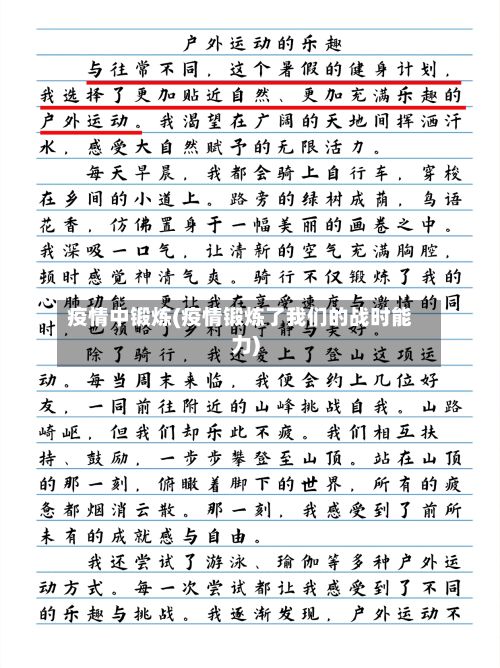 户外运动的乐趣
与往常不同，这个暑假的健身计划，
我选择了更加贴近自然、更加充满乐趣的
户外运动。我渴望在广阔的天地间挥洒汗
水，感受大自然赋予的无限活力。
每天早晨，我都会骑上自行车，穿梭
在乡间的小道上。路旁的绿树成荫，鸟语
花香，仿佛置身于一幅美丽的画卷之中。
我深吸一口气，让清新的空气充满胸腔，
顿时感觉神清气爽。骑行不仅锻炼了我的
心肺功能，更让我在享受速度与激情的同
时，也领略了乡村的宁静与美好。
疫情中锻炼(疫情锻炼了我们的战时能
力)
除了骑行，我还爱上了登山这项运
动。每当周末来临，我便会约上几位好
友，一同前往附近的山峰挑战自我。山路
崎岖，但我们却乐此不疲。我们相互扶
持、鼓励，一步步攀登至山顶。站在山顶
的那一刻，俯瞰着脚下的世界，所有的疲
惫都烟消云散。那一刻，我感受到了前所
未有的成就感与自由。
我还尝试了游泳、瑜伽等多种户外运
动方式。每一次尝试都让我感受到了不同
的乐趣与挑战。我逐渐发现，户外运动不